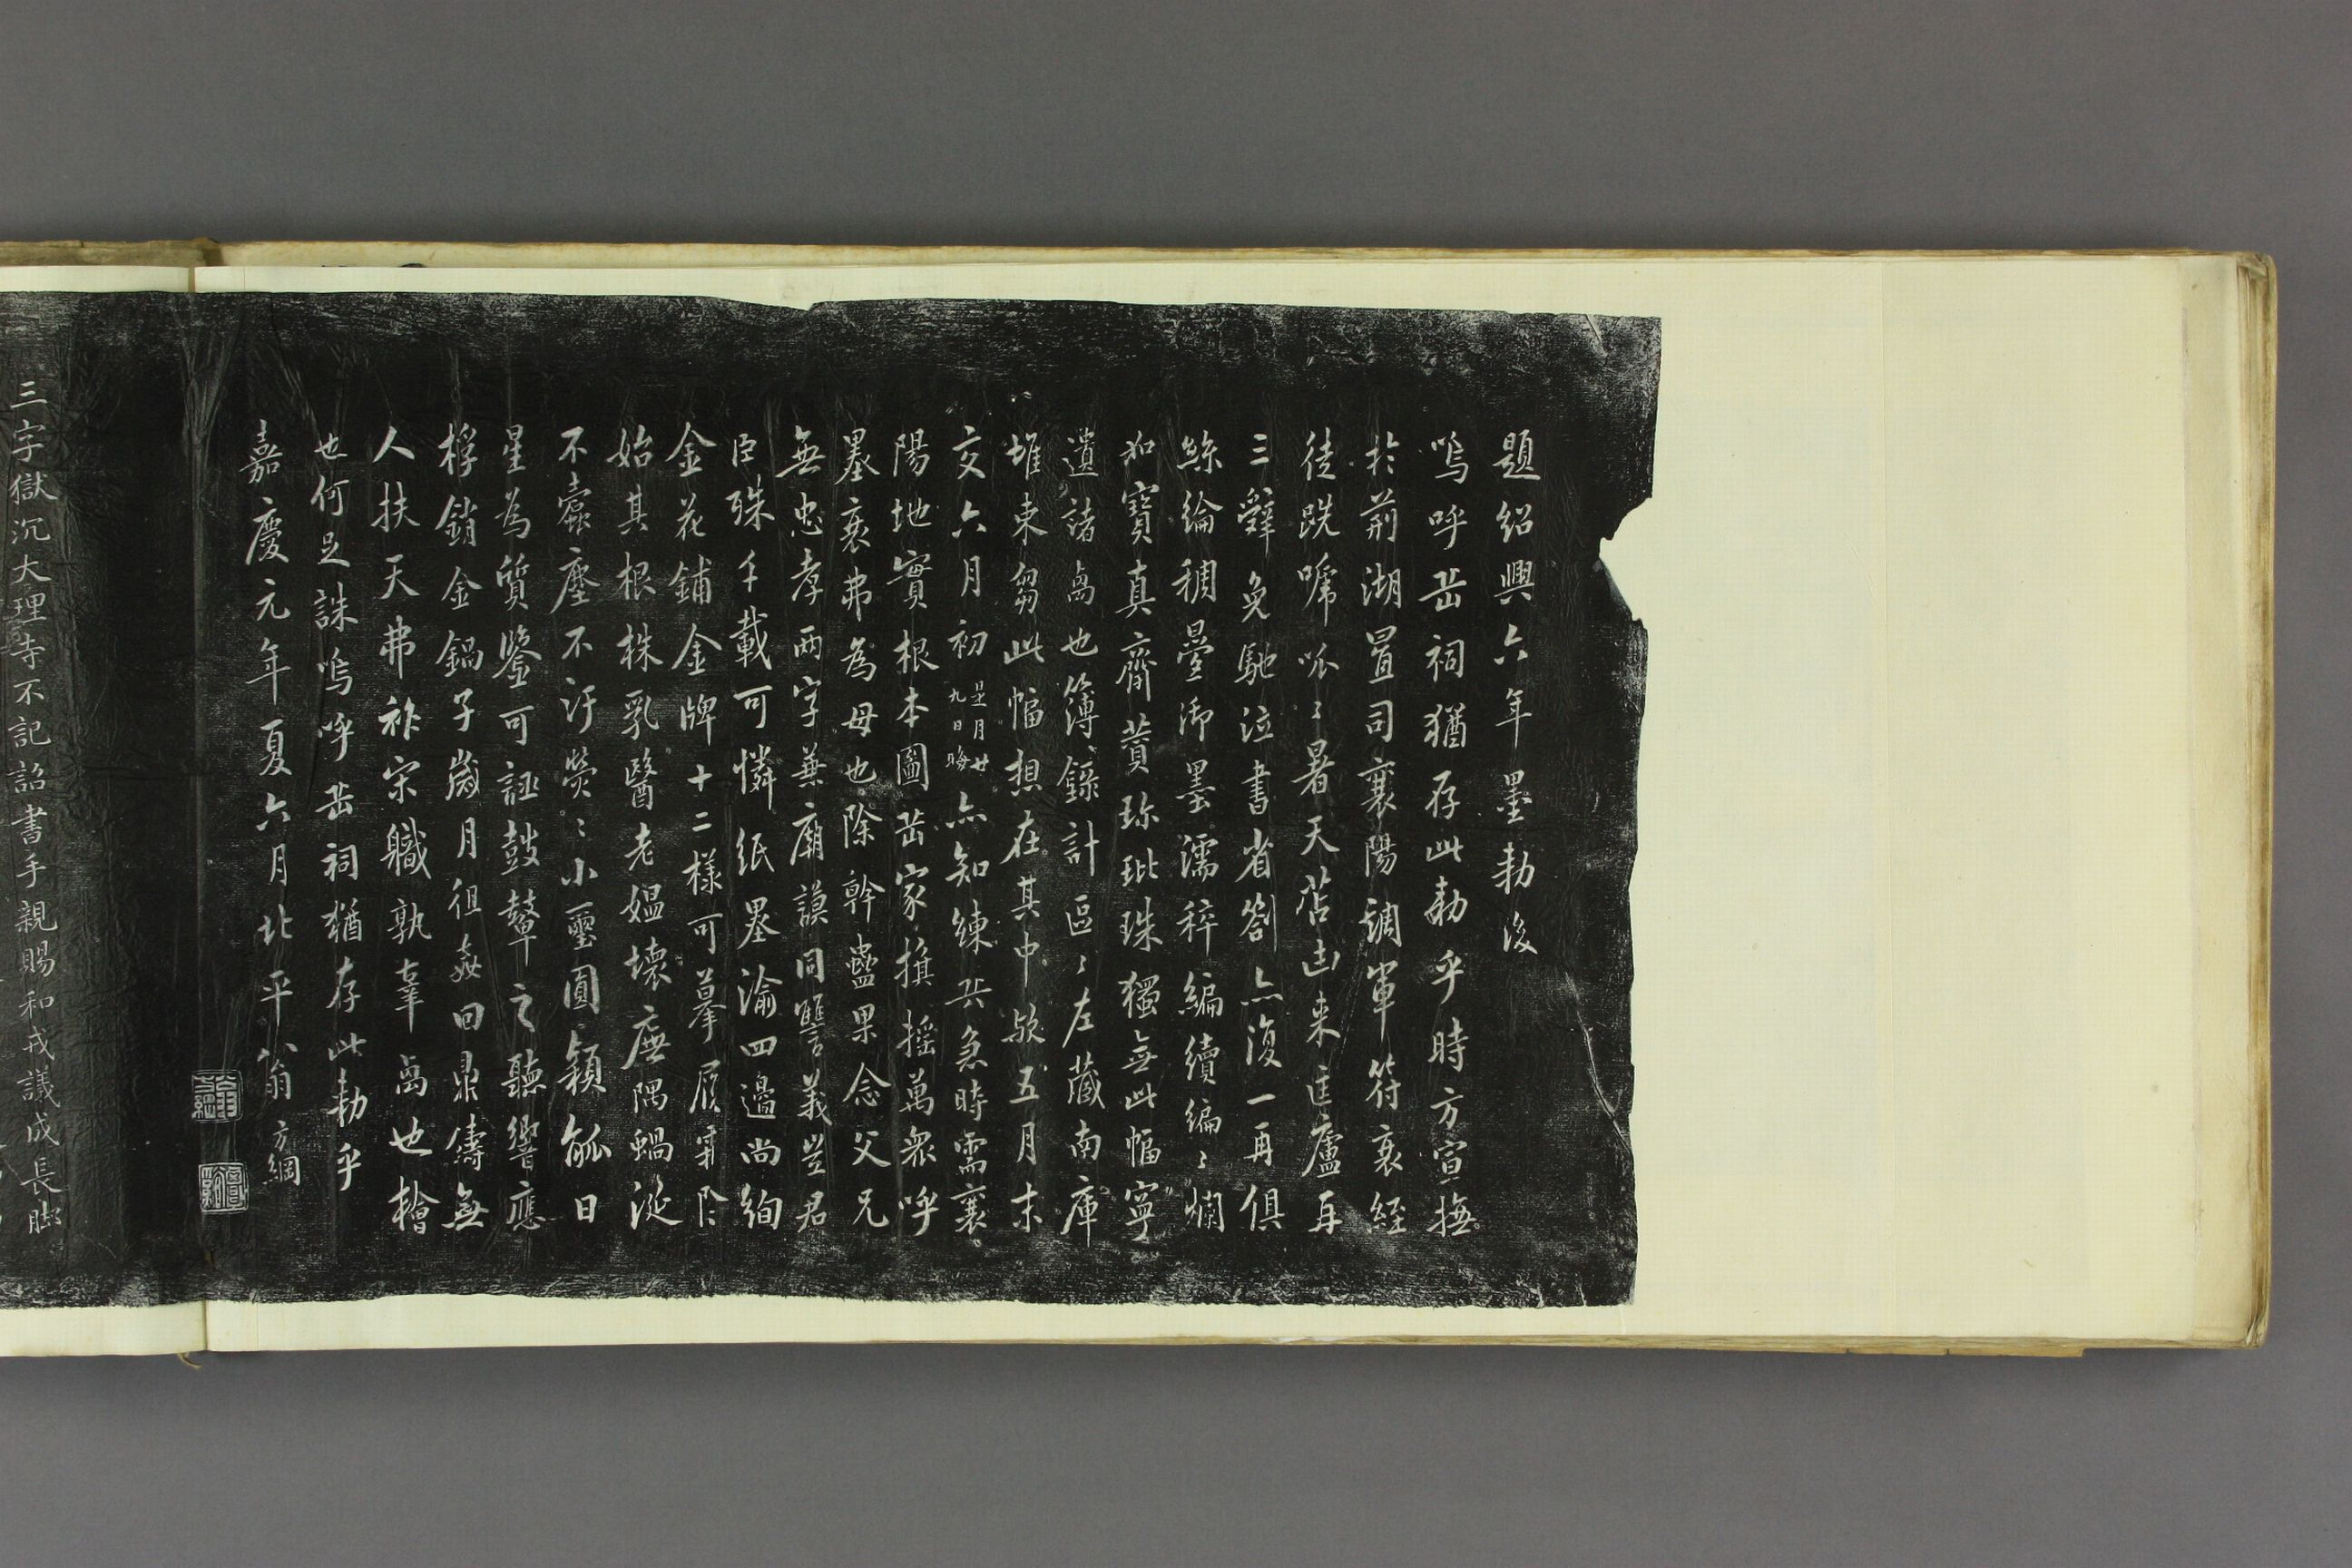 題紹興六年墨勅後
嗚呼岳祠猶存此勅乎時方宣撫
於荊湖置司襄陽調軍符衰絰
徒跣啼呱〻暑天苫凷來匡廬再
三辭免馳泣書省劄亦復一再俱
絲綸稠疊御墨濡稡編續編〻爛
如寶真齋贊珍玭珠獨無此幅寧
遺諸卨也簿錄計區〻左藏南庫
堆束芻此幅想在其中歟五月末
交六月初是月廿九日晦亦知練兵急時需襄
陽地實根本圖岳家旗搖萬衆呼
墨衰弗為毋也除幹蠱果念父兄
無忠孝兩字兼廟謨同讐義豈君
臣殊千載可憐紙墨渝四邊尚絢
金花鋪金牌十二樣可摹屓霸陰
始其根株乳醫老媼壞廡隅蝸涎
不蠹塵不汙熒〻小璽圓穎觚日
星為質鑒可誣鼓鼙之聽響應
桴銷金鍋子歲月徂姦回鼎鑄無
人扶天弗祚宋職孰辜卨也檜
也何足誅嗚呼岳祠猶存此勅乎
嘉慶元年夏六月北平翁方綱
三字獄沉大理寺不記詔書手親賜和戎議成長脚